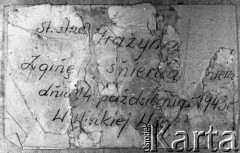 St. strzel. Grażyna
Zginęła śmiercią
dnia 14 października 1943 r.
Ośrodek
Karta